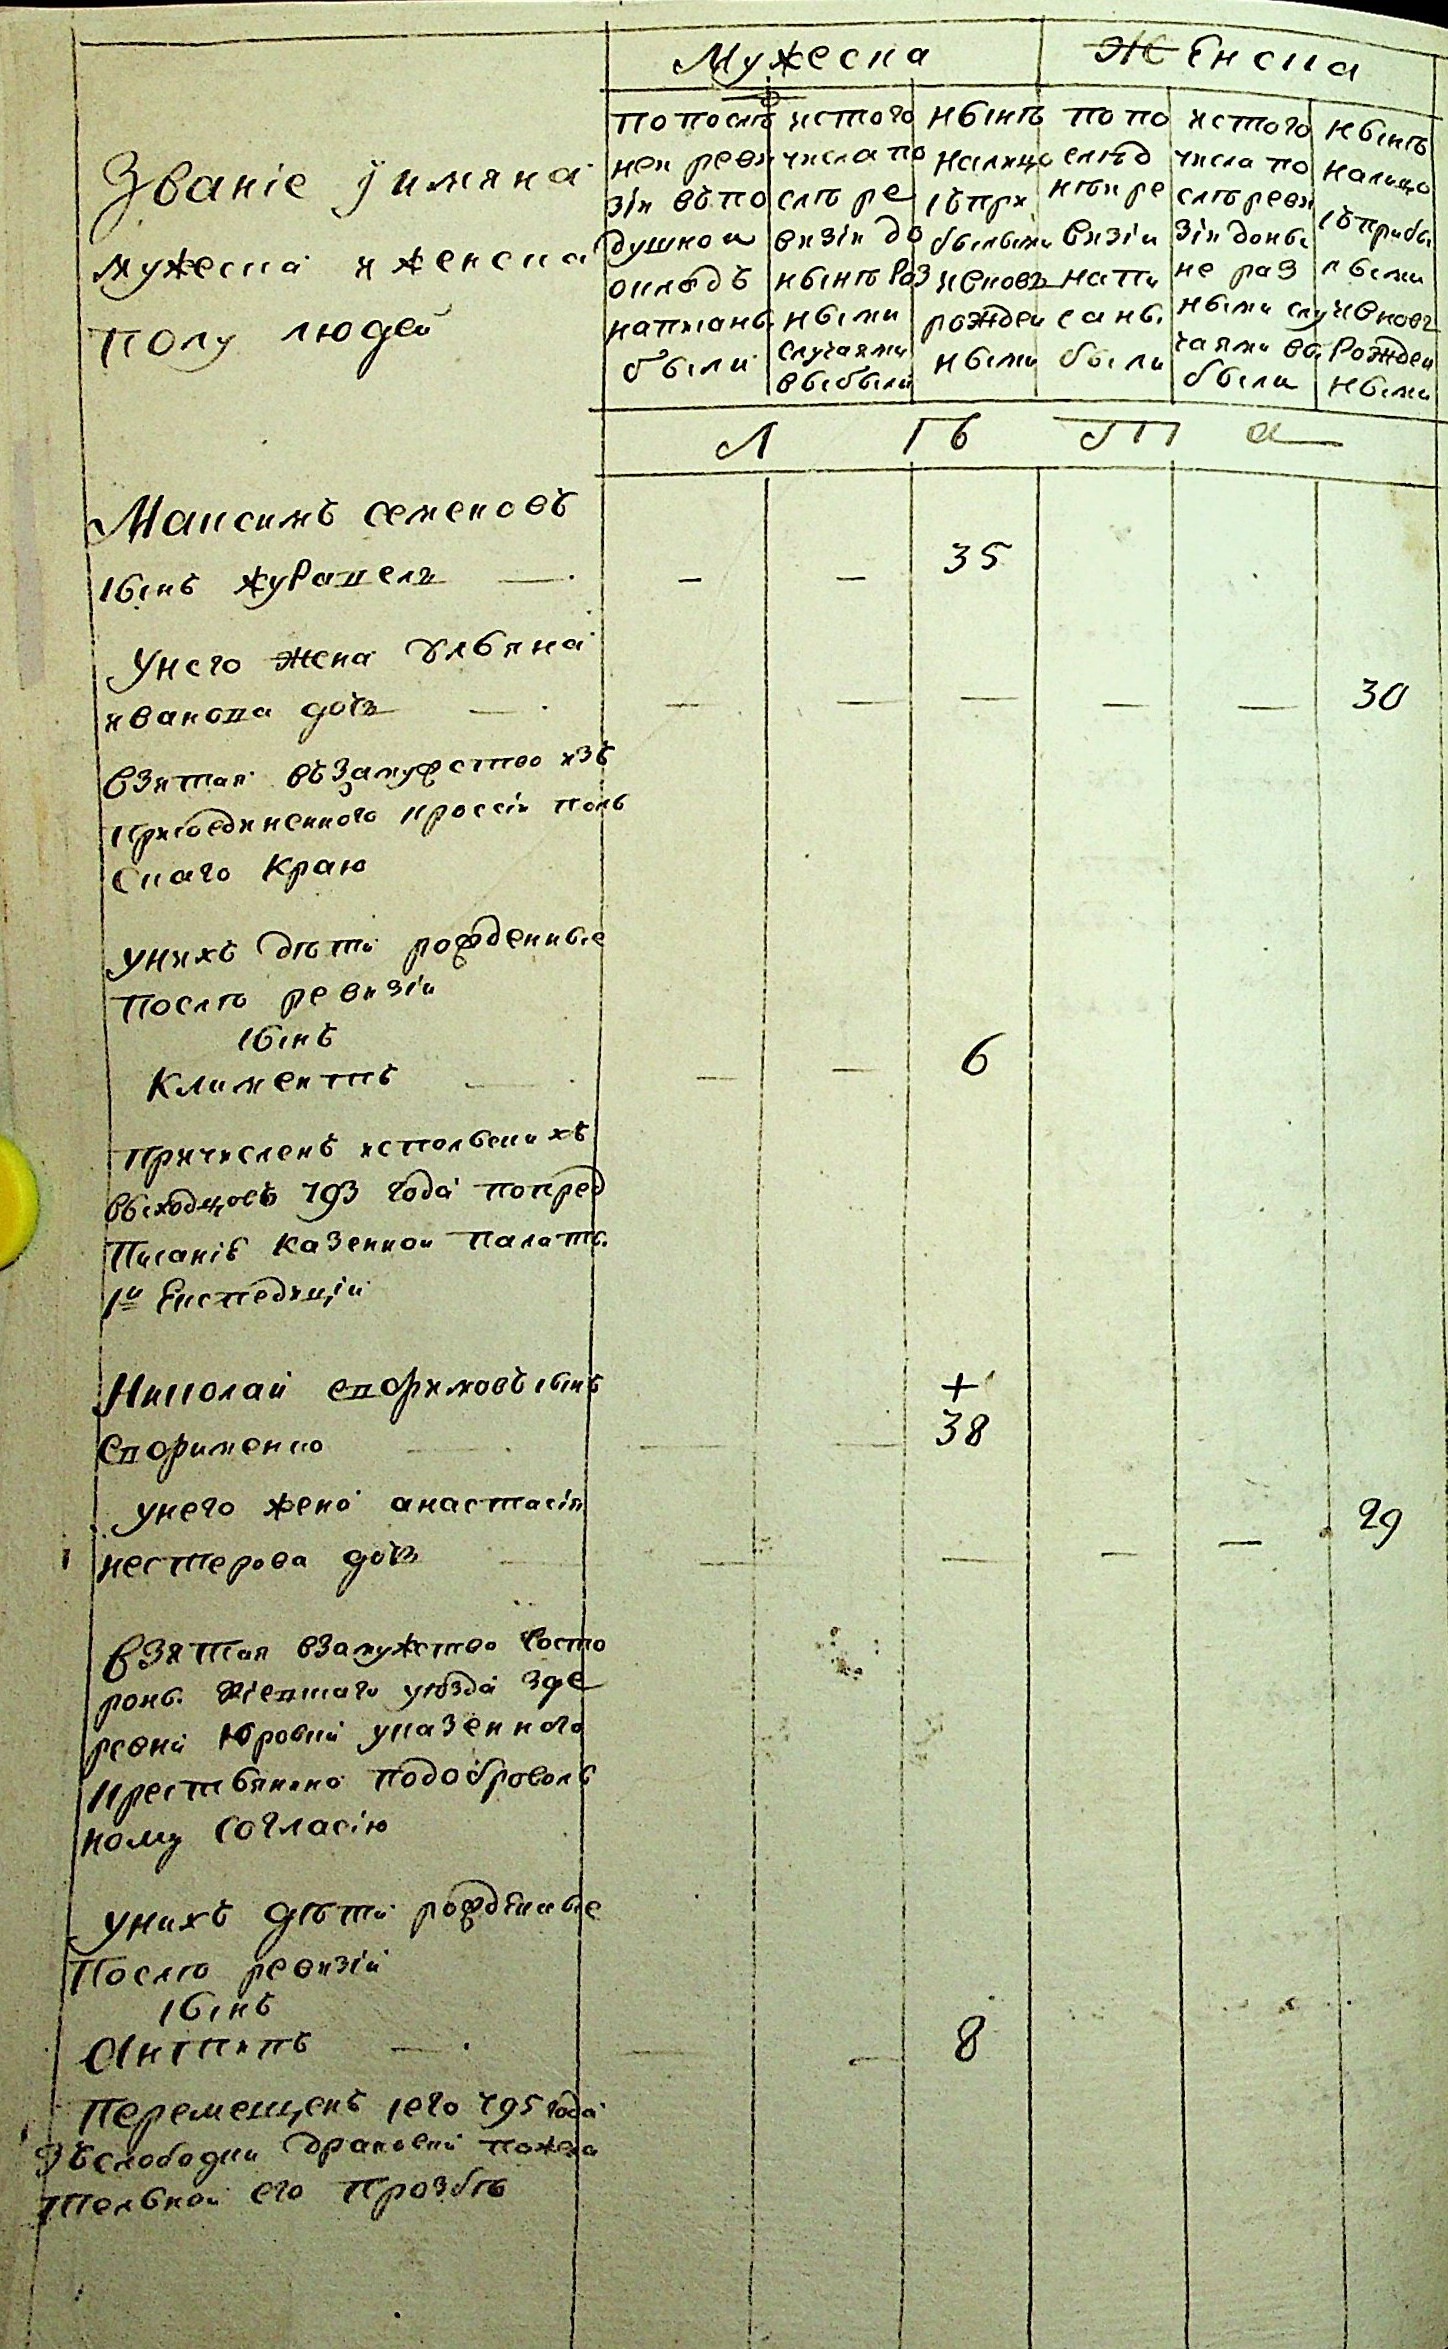 Мужеска
Женска
Званіе ӱ имяна
мужеска и женска
полу людей
по послѣ
ней реви
зіи въ по
душном
окладѣ
написанъ
были
ис того
числа по
слѣ ре
визіи до
нынѣ раз
ными
случаями
выбыли
нынѣ
налицо
съ при
былыми
и вновъ
рожден
ными
по по
слѣд
нѣи ре
визіи
напи
саны
были
ис того
числа по
слѣ реви
зіи доны
не раз
ными слу
чаями вы
были
нынѣ
налицо
съ прибы
лыми
и вновъ
рожден
ными
Л Ѣ Т а
Максимъ семеновъ
сынъ журавель — — — 35
У него жена ульяна
иванова дочь — — — — — — 30
взятая въ замужство изъ
присоединенного к россіи поль
скаго краю
у нихъ дѣти рожденные
послѣ ревизіи
сынъ
Климентъ — — — 6
причисленъ ис польскихъ
выходцовъ 793 года по пред
писанію казенной палаты
1й експедиціи
Николай евфимовъ сынъ +
евфименко — — — 38
у него жена анастасія
нестерова дочь — — — — — 29
взятая в замужство с осто
роны кіевскаго уѣзда з де
ревни Юровки у казенного
крестьянина по доброволь
ному согласію
у нихъ дѣти рожденные
послѣ ревизіи
сынъ
Антипъ — — — 8
перемещенъ сего 795 года
Зъ слободки драновки по жела
тельной его прозбѣ